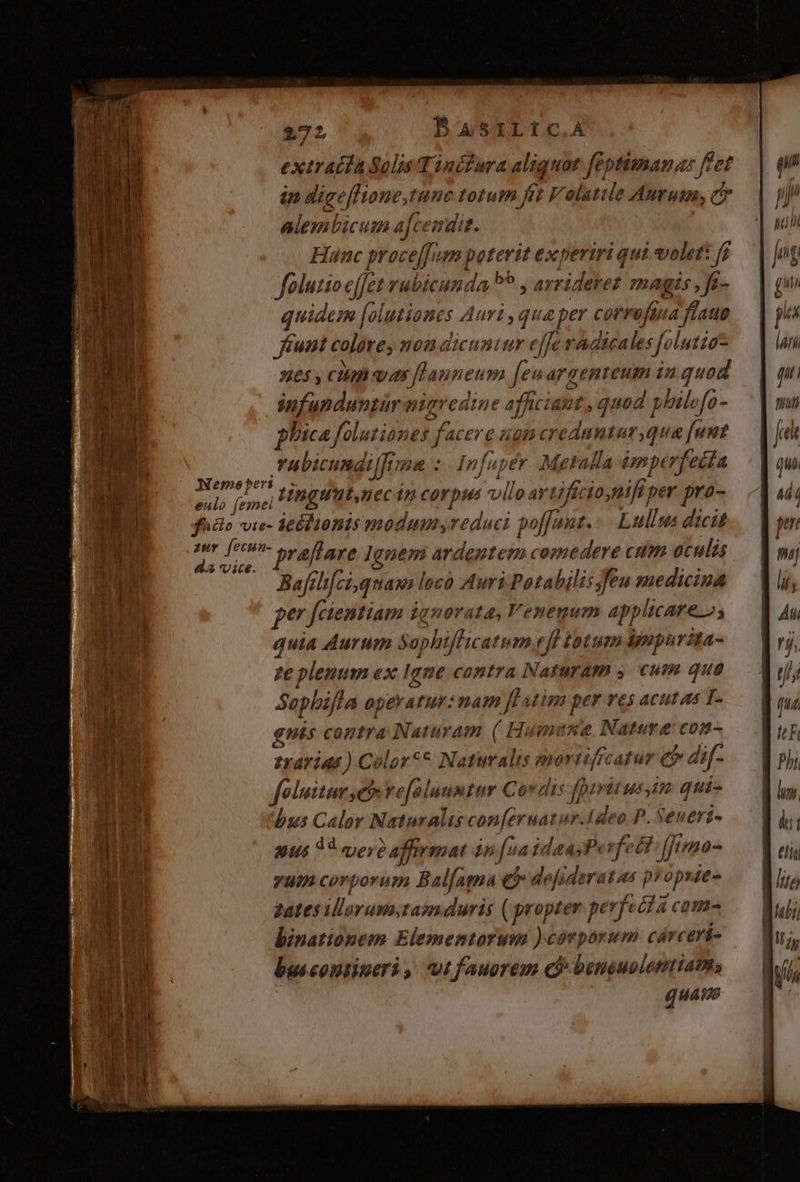 272 BASILIC.A
extracta Solis Tinctura aliquot septimanas stet
in digestione, tunc totum fit Volatile Aurum, &
alembicum ascendit.
Hunc processum poterit experiri qui volet: si
solutio esset rubicunda bb, arrideret magis, si-
quidem solutiones Auri, quæ per corrosiua flauo
fiunt colore, non dicuntur esse radicales solutio-
nes, cùm vas stanneum seu argenteum in quod
infunduntur nigredine afficiant, quod philoso-
phica solutiones facere non creduntur, quæ sunt
rubicundissimæ : Insupèr Metalla imperfecta
tingunt, nec in corpus vllo artificio, nisi per pro-
iectionis modum, reduci possunt. Lullus dicit
præstare Ignem ardentem comedere cùm oculis
Basilisci, quàm locò Auri Potabilis, seu medicina
per scientiam ignorata, Venenum applicare,
quia Aurum Sophisticatum est totum impurita-
te plenum ex Igne contra Naturam, cum quo
Sophista operatur: nam statim per res acutas I-
gnis contra Naturam ( Humanæ Naturæ con-
trarias) Color cc Naturalis mortificatur & dis-
soluitur, & resoluuntur Cordis spiritus, in qui-
bus Calor Naturalis conseruatur. Ideo P. Seueri-
nus dd verè affirmat in sua idæa, Perfectissimo-
rum corporum Balsama & desideratas proprie-
tates illorum, tam duris ( propter perfectã com-
binationem Elementorum ) corporum carceri-
bus contineri, vt fauorem & beneuolentiam,
quam
Nemo peri
culo semel
facto vte-
tur secun-
da vice.